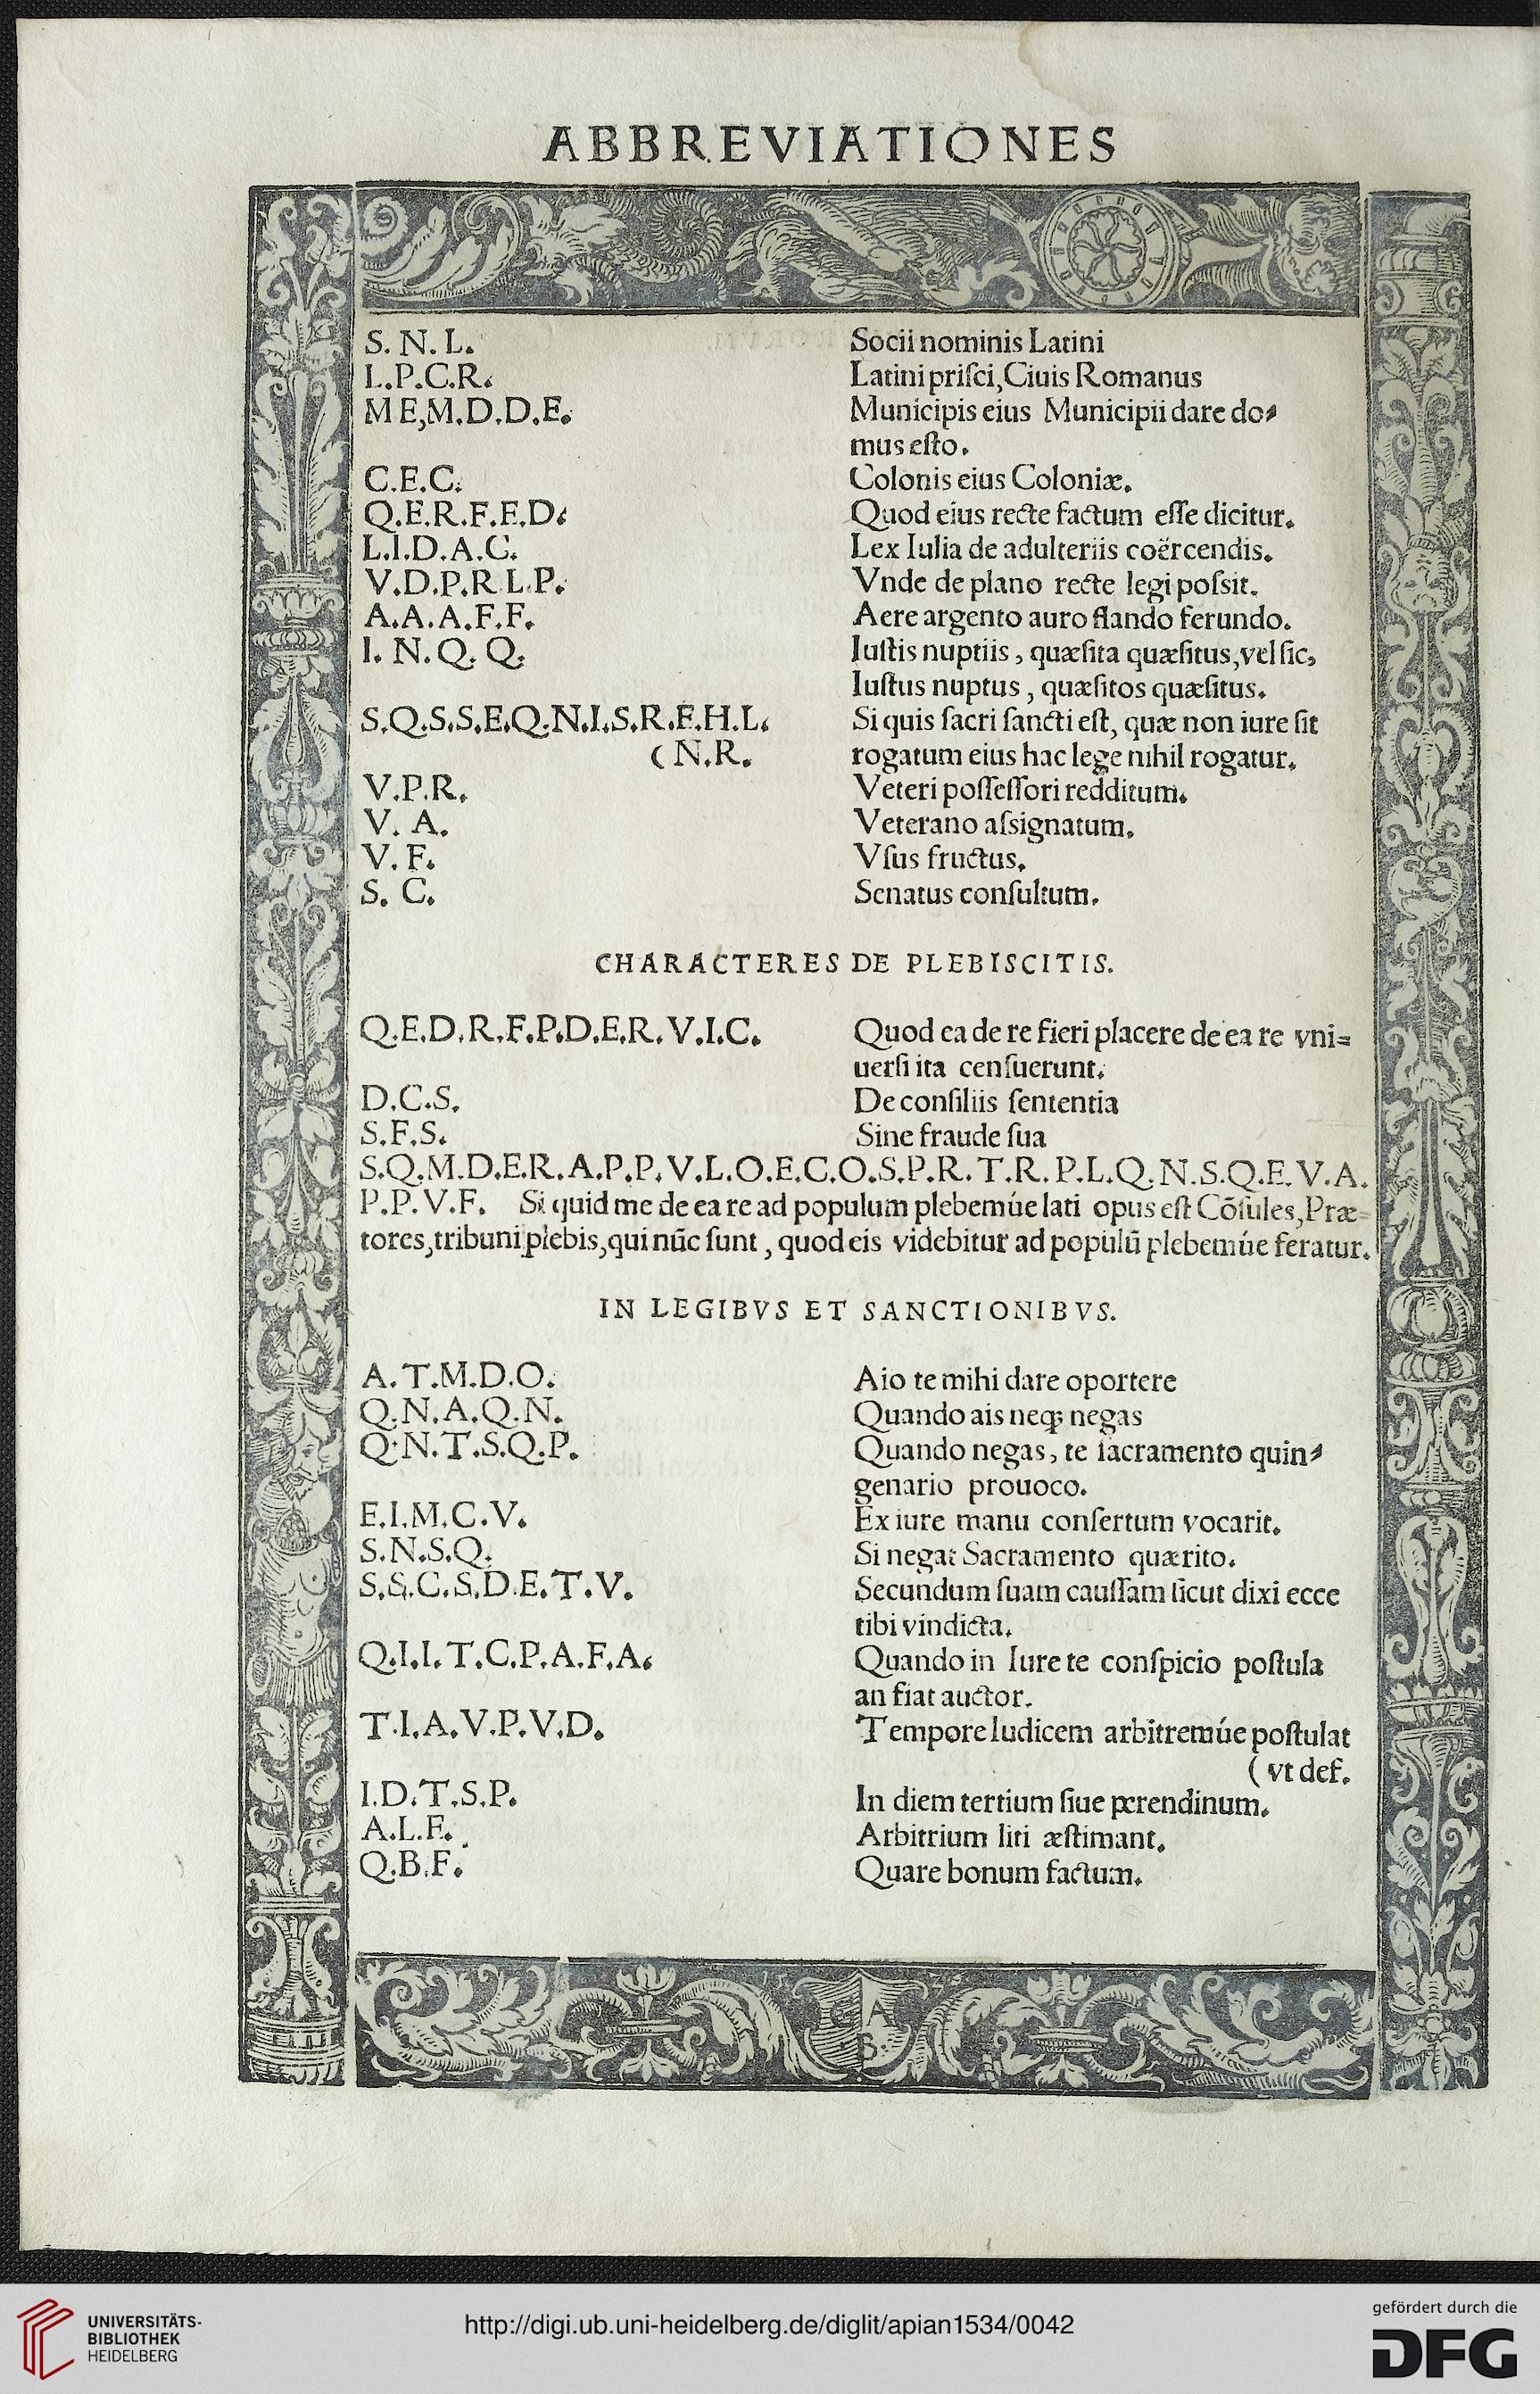 ABBREVIATIONES
S. N. L. Socii nominis Latini
L.P.C.R. Latini priſci, Ciuis Romanus
M E,M.D.D.E. Municipis eius Municipii dare do⸗
mus eſto.
C.E.C. Colonis eius Coloniæ.
Q.E.R.F.E.D. Quod eius recte factum eſſe dicitur.
L.I.D.A.C. Lex Iulia de adulteriis coërcendis.
V.D.P.R L.P. Vnde de plano recte legi poſsit.
A.A.A.F.F. Aere argento auro flando ferundo.
I. N. Q. Q. Iuſtis nuptiis, quæſita quæſitus, vel ſic,
Iuſtus nuptus, quæſitos quæſitus.
S.Q.S.S.E.Q.N.I.S.R.E.H.L. Si quis ſacri ſancti eſt, quæ non iure ſit
( N.R. rogatum eius hac lege nihil rogatur.
V.P.R. Veteri poſſeſſori redditum.
V. A. Veterano aſsignatum.
V. F. Vſus fructus.
S. C. Senatus conſultum.
CHARACTERES DE PLEBISCITIS.
Q.E.D.R.F.P.D.E.R. V.I.C. Quod ea de re fieri placere de ea re vni⸗
uerſi ita cenſuerunt.
D.C.S. De conſiliis ſententia
S.F.S. Sine fraude ſua
S.Q.M.D.E.R.A.P.P.V.L.O.E.C.O.S.P.R.T.R.P.L.Q.N.S.Q.E.V.A.
P.P.V.F. Si quid me de ea re ad populum plebemúe lati opus eſt Cõſules, Præ⸗
tores, tribuni plebis, qui nũc ſunt, quod eis videbitur ad populũ plebemúe feratur.
IN LEGIBVS ET SANCTIONIBVS.
A.T.M.D.O. Aio te mihi dare oportere
Q.N.A.Q.N. Quando ais neqꝫ negas
Q.N.T.S.Q.P. Quando negas, te ſacramento quin⸗
genario prouoco.
E.I.M.C.V. Ex iure manu conſertum vocarit.
S.N.S.Q. Si negat Sacramento quærito.
S.S.C.S.D.E.T.V. Secundum ſuam cauſſam ſicut dixi ecce
tibi vindicta.
Q.I.I.T.C.P.A.F.A. Quando in Iure te conſpicio poſtula
an fiat auctor.
T.I.A.V.P.V.D. Tempore Iudicem arbitremúe poſtulat
( vt def.
I.D.T.S.P. In diem tertium ſiue perendinum.
A.L.E. Arbitrium liti æſtimant.
Q.B.F. Quare bonum factum.
A
B
UNIVERSITÄTS-
BIBLIOTHEK
HEIDELBERG
http://digi.ub.uni-heidelberg.de/diglit/apian1534/0042
gefördert durch die
DFG